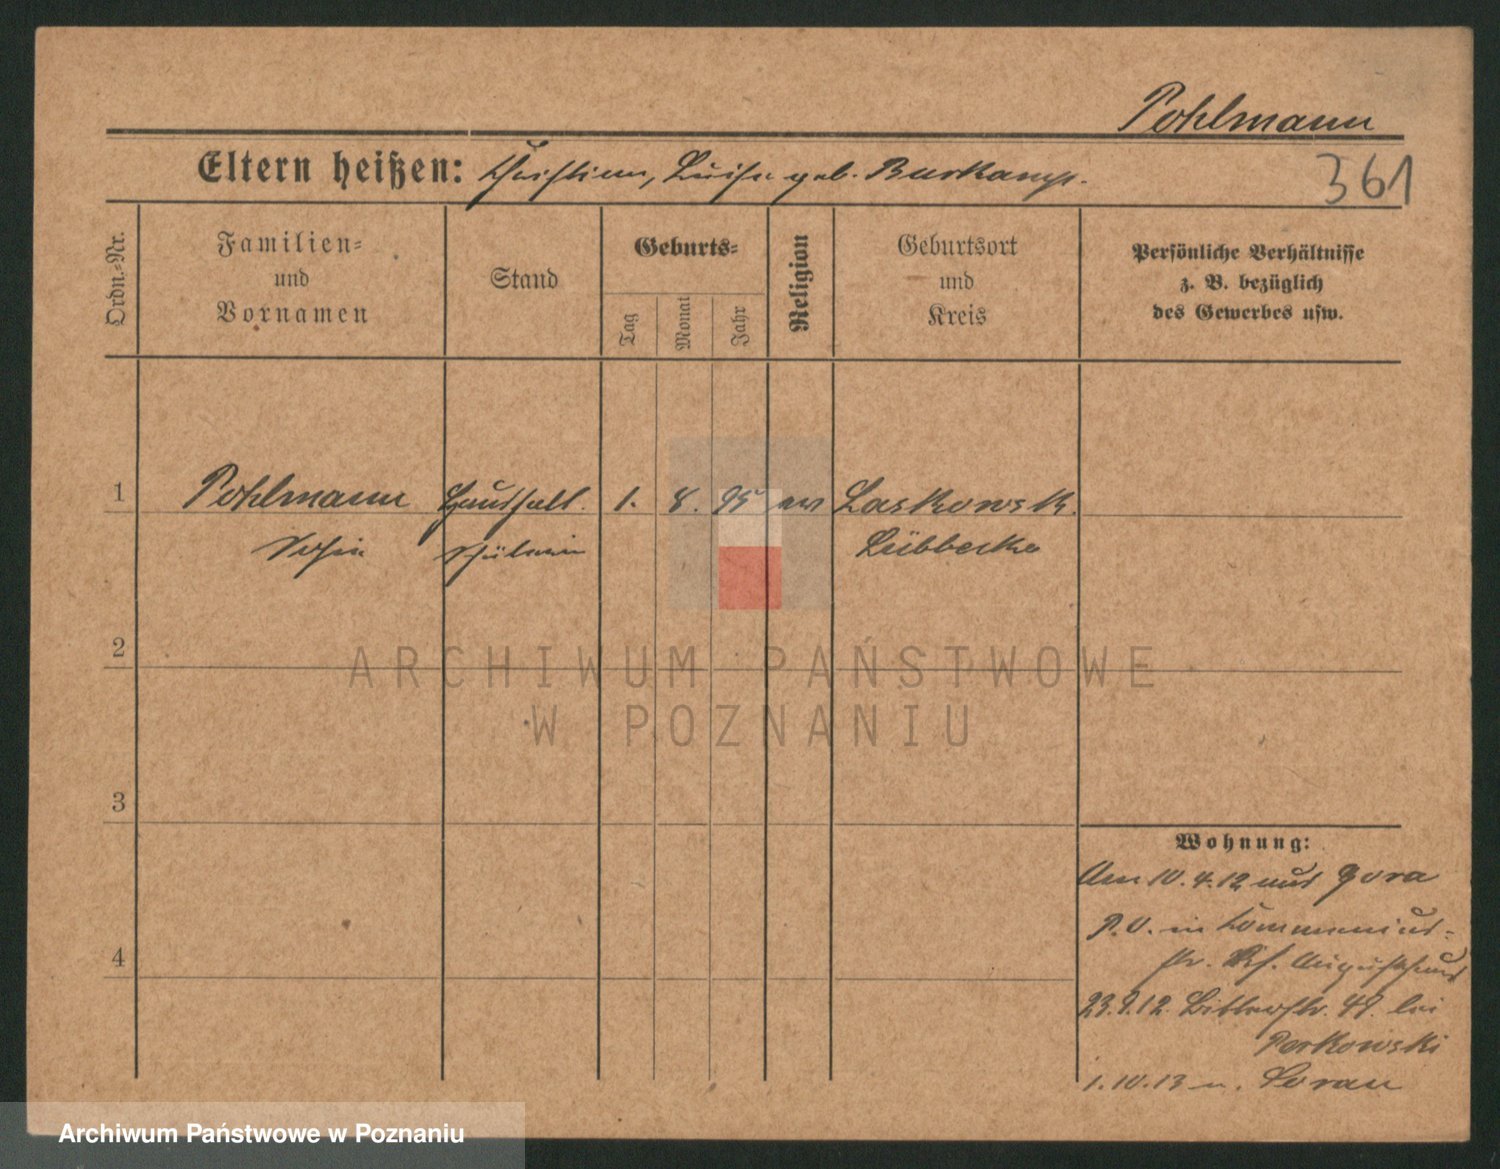 Pohlmann
Eltern heißen: Christian, Luise geb. Burkamp.
361
Ordn.-Nr.
Familien-
und
Vornamen
Stand
Geburts-
Tag
Monat
Jahr
Religion
Geburtsort
und
Kreis
Persönliche Verhältnisse
z. B. bezüglich
des Gewerbes usw.
1 Pohlmann Haushalt. 1. 8. 95 ev Laskowsk.
Sofie schülerin Lübbecke
2
3
4
Wohnung:
Am 10.4.12 aus Gora
P.O. in Kommenius-
str. Augustahaus
23.9.12. Bitterstr. 49. bei
Perkowski
1.10.13 n. Soran
ARCHIWUM PAŃSTWOWE
W POZNANIU
Archiwum Państwowe w Poznaniu